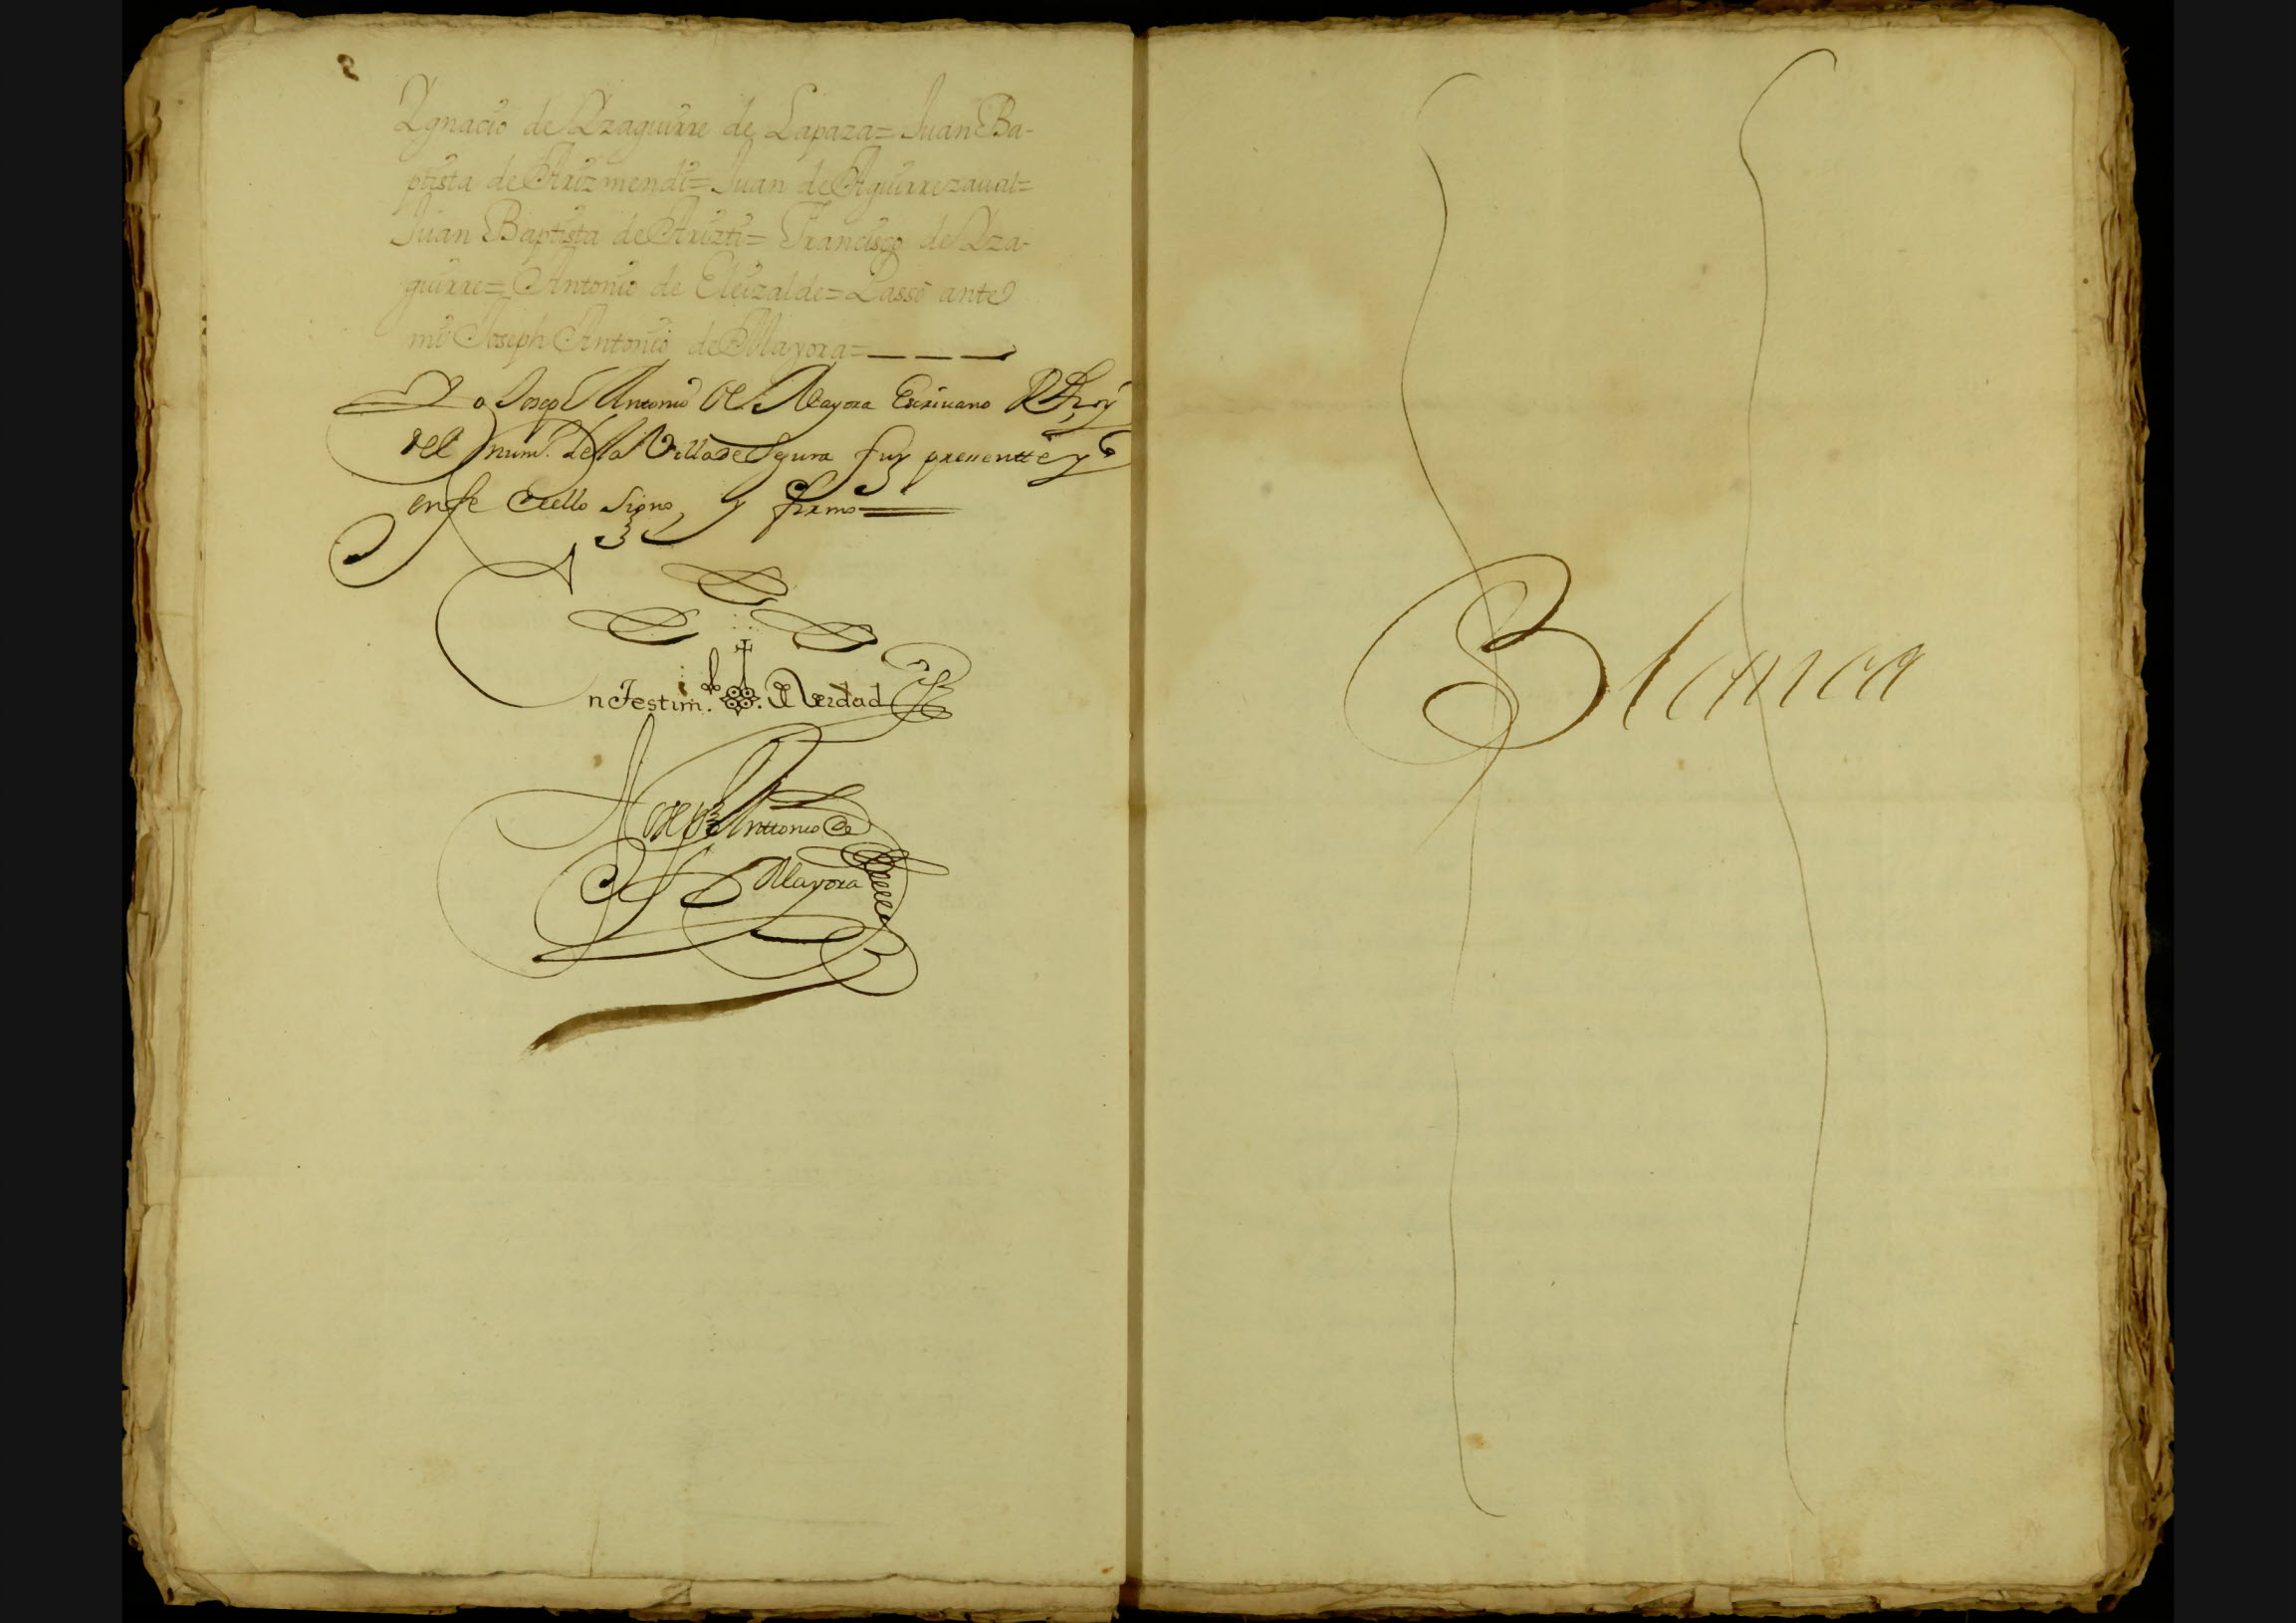 Ygnacio de Yzaguirre de Lapaza= Juan Ba-
ptista de Arizmendi= Juan de Aguirrezaual=
Juan Baptista de Arizti= Francisco de Yza-
guirre= Antonio de Eleizalde= Passo ante
mi Joseph Antonio de Mayora=
Yo Joseph Antonio de Mayora Escriuano
del num.º de la Villa de Segura fuy presentte y
en fe de ello signo y firmo
En Testim.º de Verdad
Joseph Anttonio de
Mayora
Blanca